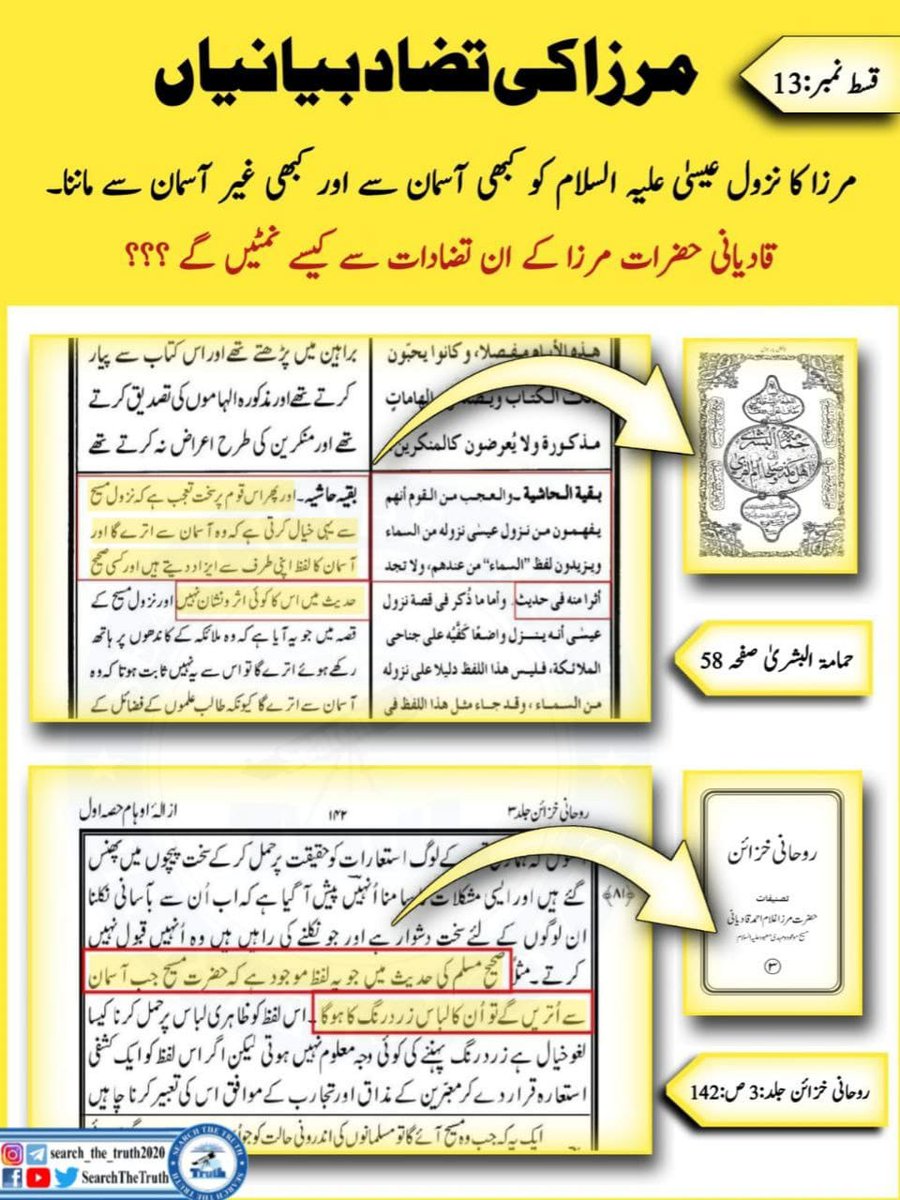 قسط نمبر:13
مرزا کی تضاد بیانیاں
مرزا کا نزول عیسیٰ علیہ السلام کو کبھی آسمان سے اور کبھی غیر آسمان سے ماننا۔
قادیانی حضرات مرزا کے ان تضادات سے کیسے نمٹیں گے ؟؟؟
هذه الأيام مفصلا، وكانوا يحبّون
الكتاب
مذكورة ولا يُعرضون كالمنكرين.
بقية الحاشية ـ والعجب من القوم أنهم
يفهمون من نزول عيسى نزوله من السماء
ويزيدون لفظ "السماء" من عندهم، ولا تجد
أثرا منه في حديث. وأما ما ذُكر في قصة نزول
عيسى أنه ينزل واضعًا كفَّيه على جناحي
الملائكة، فليس هذا اللفظ دليلا على نزوله
من السماء، وقد جاء مثل هذا اللفظ في
براہین میں پڑھتے تھے اور اس کتاب سے پیار
کرتے تھے اور مذکورہ الہاموں کی تصدیق کرتے
تھے اور منکرین کی طرح اعراض نہ کرتے تھے
بقیہ حاشیہ۔ اور پھر اس قوم پر سخت تعجب ہے کہ نزول مسیح
سے یہی خیال کرتی ہے کہ وہ آسمان سے اترے گا اور
آسمان کا لفظ اپنی طرف سے ایزاد دیتے ہیں اور کسی صحیح
حدیث میں اس کا کوئی اثر و نشان نہیں اور نزول مسیح کے
قصہ میں جو یہ آیا ہے کہ وہ ملائکہ کے کاندھوں پر ہاتھ
رکھے ہوئے اترے گا تو اس سے یہ نہیں ثابت ہوتا کہ وہ
آسمان سے اترے گا کیونکہ طالب علموں کے فضائل کے
حمامة البشرى
حمامۃ البشریٰ صفحہ 58
روحانی خزائن جلد ۳
۱۴۲
ازالۂ اوہام حصہ اول
کے لوگ استعارات کو حقیقت پر حمل کر کے سخت پیچوں میں پھنس
گئے ہیں اور ایسی مشکلات کا سامنا اُنہیں پیش آ گیا ہے کہ اب اُن سے بآسانی نکلنا
﴿۸۱﴾
ان لوگوں کے لئے سخت دشوار ہے اور جو نکلنے کی راہیں ہیں وہ اُنہیں قبول نہیں
کرتے۔ مثلاً صحیح مسلم کی حدیث میں جو یہ لفظ موجود ہے کہ حضرت مسیح جب آسمان
سے اُتریں گے تو اُن کا لباس زرد رنگ کا ہوگا۔ اس لفظ کو ظاہری لباس پر حمل کرنا کیسا
لغو خیال ہے زرد رنگ پہننے کی کوئی وجہ معلوم نہیں ہوتی لیکن اگر اس لفظ کو ایک کشفی
استعارہ قرار دے کر معبّرین کے مذاق اور تجارب کے موافق اس کی تعبیر کرنا چاہیں
ایک یہ کہ جب وہ مسیح آئے گا تو مسلمانوں کی اندرونی حالت کو جو
روحانی خزائن
تصنیفات
حضرت مرزا غلام احمد قادیانی
مسیح موعود و مہدی معہود علیہ السلام
۳
روحانی خزائن جلد:3 ص:142
search_the_truth2020
SearchTheTruth
SEARCH THE TRUTH
Truth